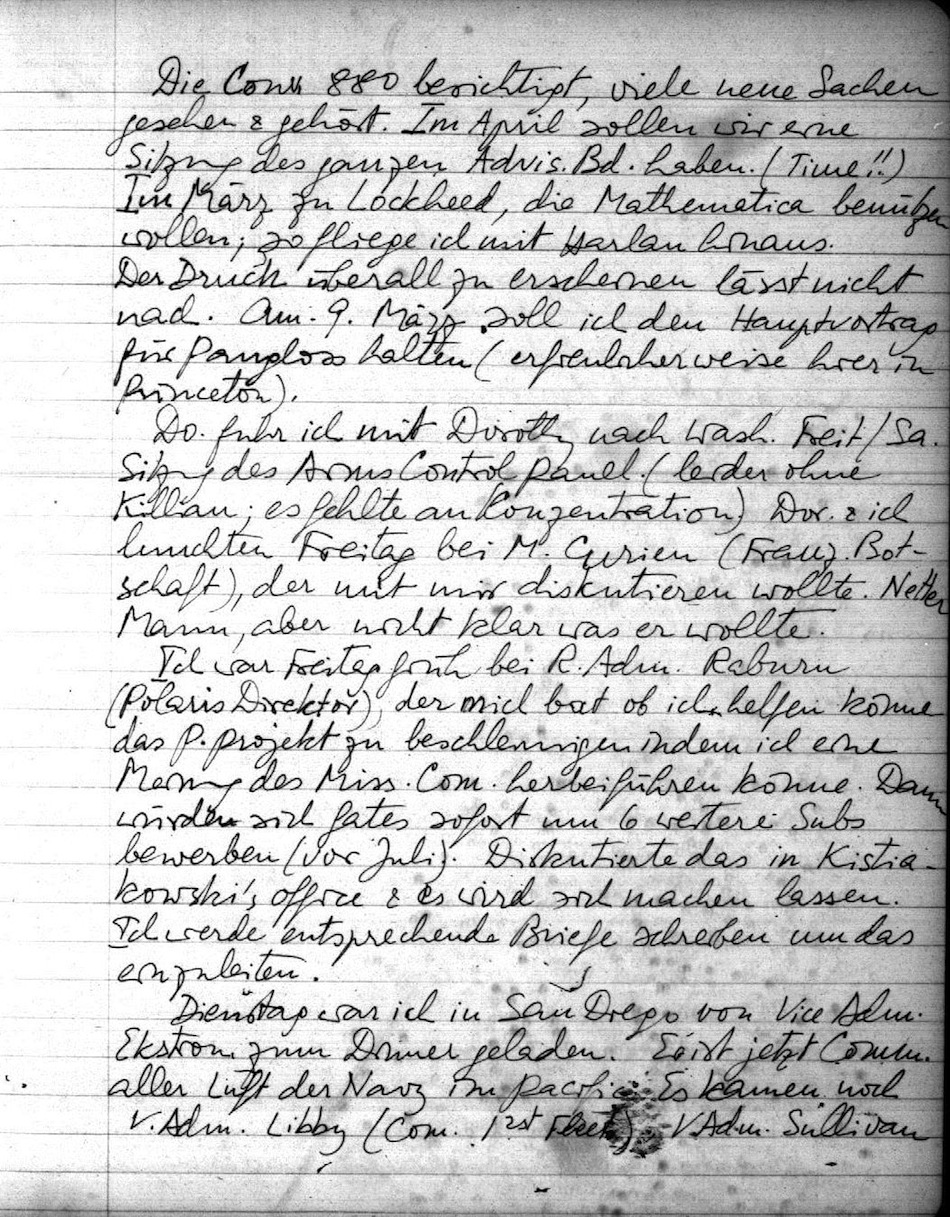 Die Conv 880 besichtigt, viele neue Sachen
gesehen & gehört. Im April sollen wir eine
Sitzung des ganzen Advis. Bd. haben. (Time!!)
Im März zu Lockheed, die Mathematica benützen
wollen; so fliege ich mit Harlan hinaus.
Der Druck überall zu erscheinen lässt nicht
nach. Am 9. März soll ich den Hauptvortrag
für Pangloss halten (erfreulicherweise hier in
Princeton).
Do. fuhr ich mit Dorothy nach Wash. Freit/Sa.
Sitzung des Arms Control Panel. (leider ohne
Killian; es fehlte an Konzentration) Dor. & ich
lunchten Freitag bei M. (Franz. Bot-
schaft), der mit mir diskutieren wollte. Netter
Mann, aber nicht klar was er wollte.
Ich war Freitag früh bei R. Adm. Raburn
(Polaris Direktor), der mich bat ob ich helfen könne
das P. projekt zu beschleunigen indem ich eine
Meinung des Miss. Com. herbeiführen könne. Dann
würden sich Gates sofort um 6 weitere Subs
bewerben (vor Juli). Diskutierte das in Kistia-
kowski's office & es wird sich machen lassen.
Ich werde entsprechende Briefe schreiben um das
einzuleiten.
Dienstag war ich in San Diego von Vice Adm.
Ekstrom zum Dinner geladen. Er ist jetzt Comm.
aller Luft der Navy im Pacific. Es kamen noch
V. Adm. Libby (Com. 1st Fleet) V. Adm. Sullivan